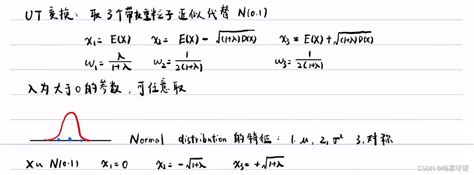 UT变换：取3个带权重粒子近似代替 N(0.1)
x₁ = E(X) x₂ = E(X) - √(1+λ)D(X) x₃ = E(X) + √(1+λ)D(X)
w₁ = λ/(1+λ) w₂ = 1/(2(1+λ)) w₃ = 1/(2(1+λ))
λ为大于0的参数，可任意取
Normal distribution 的特征：1. μ, 2, σ² 3. 对称
X~N(0.1) x₁=0 x₂=-√1+λ x₃=+√1+λ
CSDN @南是守望